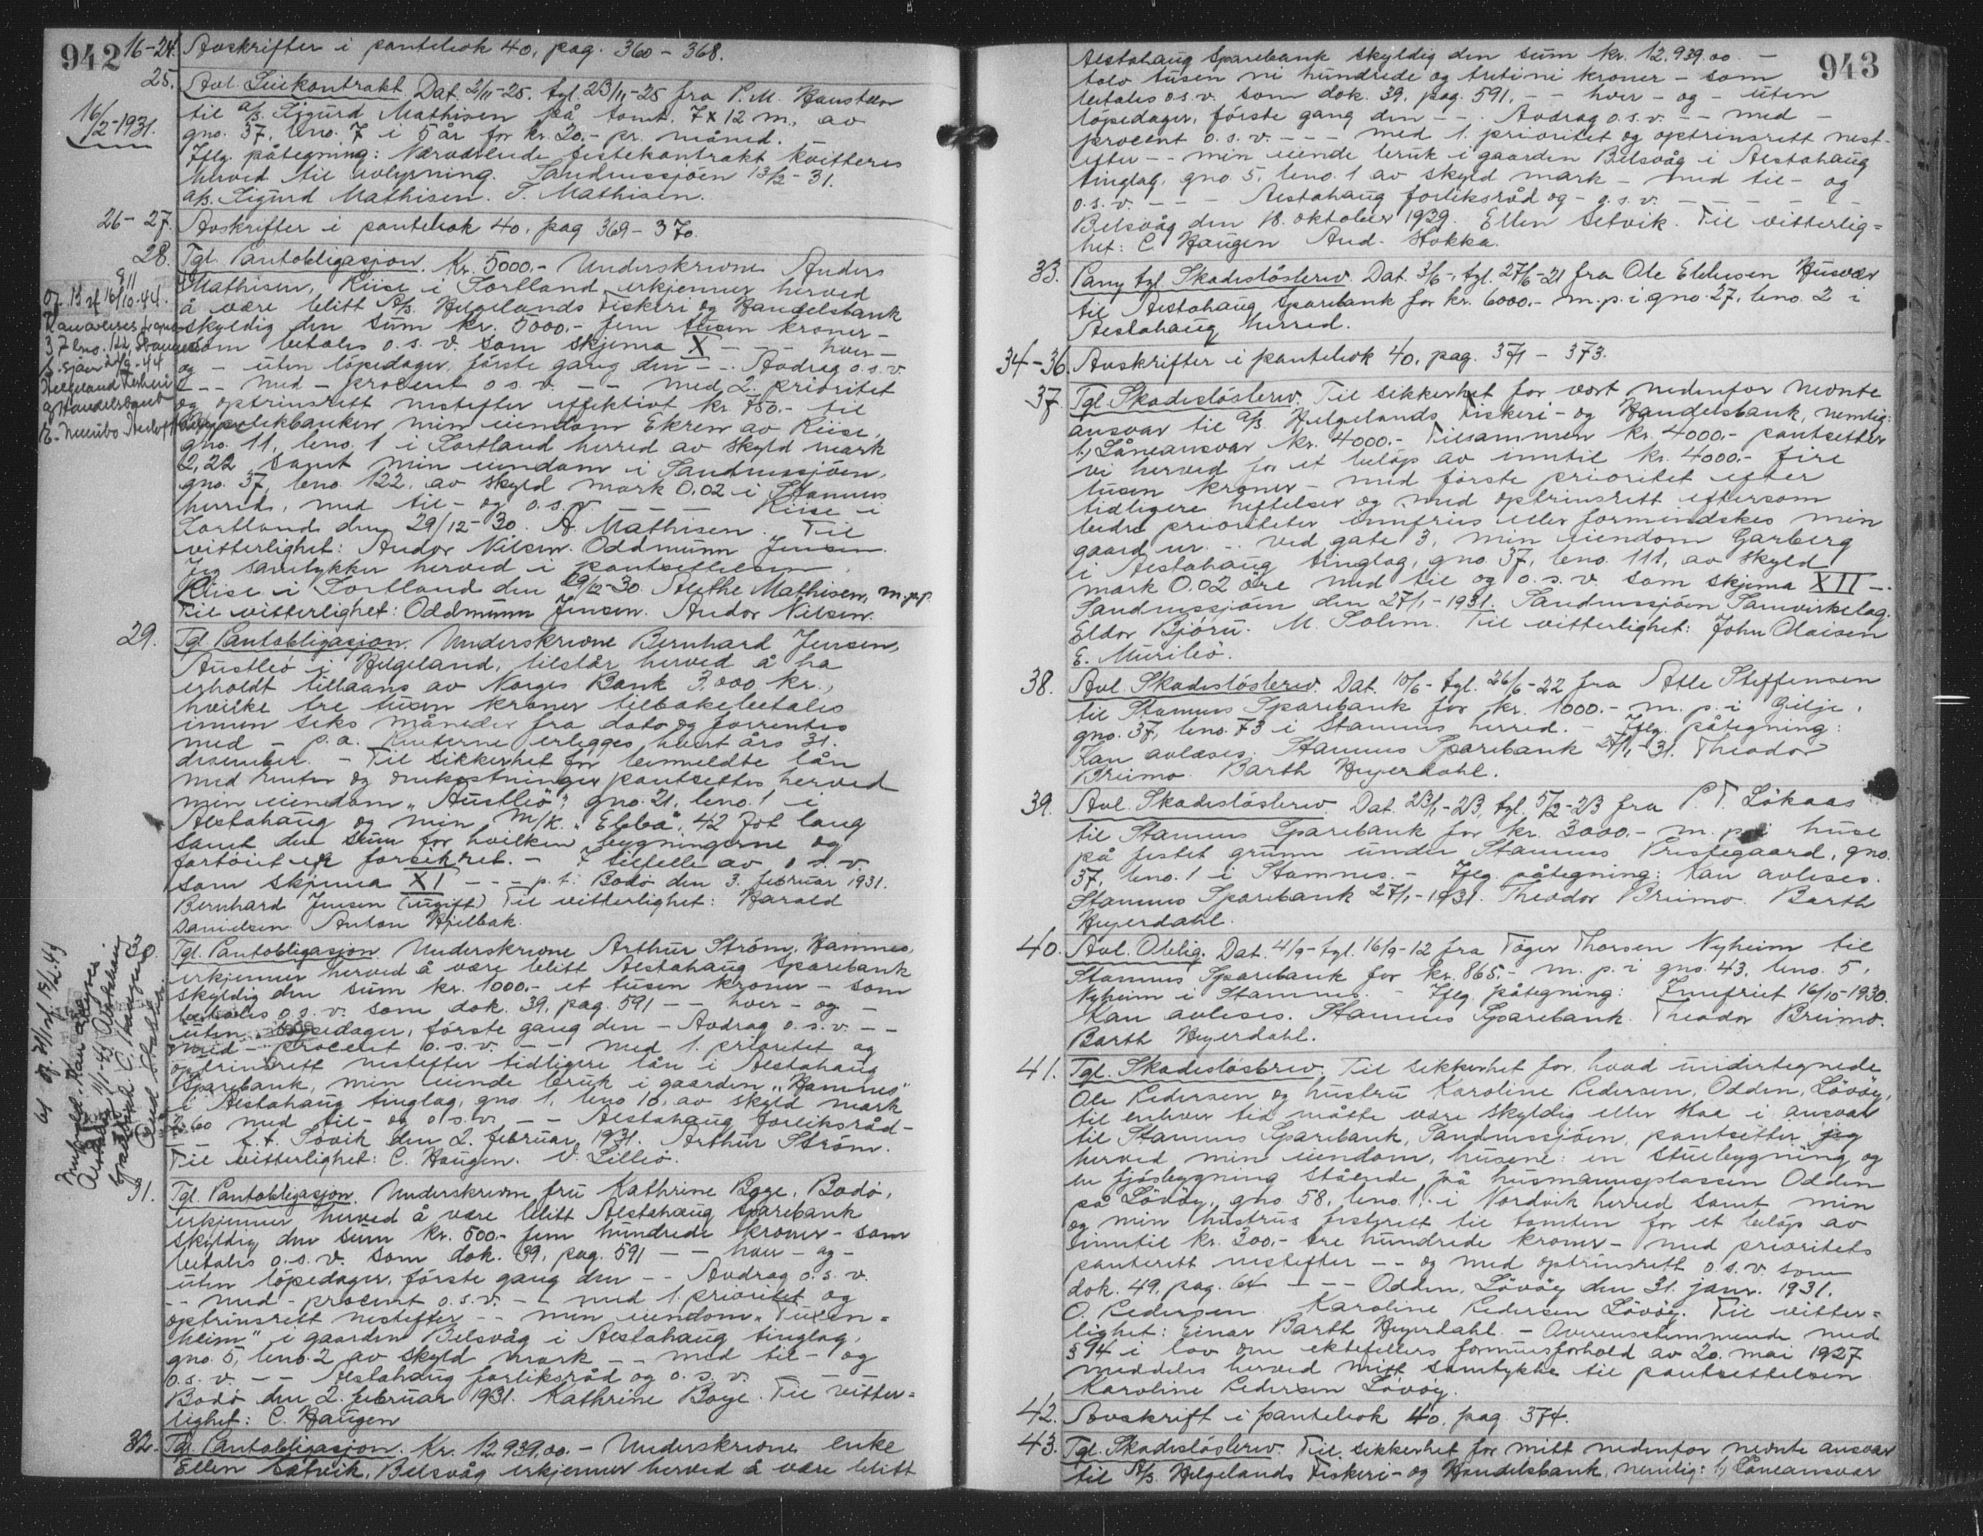 942
16-24. Avskrifter i pantebok 40, pag. 360 - 368.
25. Avl. Leiekontrakt Dat. 2/11-25. tgl. 23/11-25 fra P. M.
16/2-1931.
til A/S. Sigurd Mathisen på tomt. 7 x 12 m. av
gno. 37, bno. 7 i 5 år for kr. 20,- pr. måned. -
Iflg. påtegning: Nærværende festekontrakt kvitteres
herved til avlysning. Sandnessjøen 13/2-31.
A/S. Sigurd Mathisen. S. Mathisen.
26-27. Avskrifter i pantebok 40, pag 369 - 370.
28. Tgl. Pantobligasjon. Kr. 5000.- Underskrevne Anders
Mathisen, Reise i Sortland erkjenner herved
å være blitt A/S. Helgelands Fiskeri og Handelsbank
skyldig den sum kr. 5000.- fem tusen kroner -
som betales o. s. v. som skjema X - - - hver -
og - uten löpedager, förste gang den - - . Avdrag o. s. v.
- - med - procent o. s. v. - - med 2. prioritet
og optrinsrett nestefter effektivt kr. 750.- til
min eiendom Ekren av Reise,
gno. 11, bno. 1 i Sortland herred av skyld mark
2,22 samt min eiendom i Sandnessjöen,
gno. 37, bno. 122, av skyld mark 0.02 i Stamnes
herred, med til - og o. s. v. - - - - Reise i
Sortland den 29/12-30. A. Mathisen. Til
vitterlighet: Andor Nilsen. Oddmunn Jensen.
Jeg samtykker herved i pantsettelsen.
Reise i Sortland den 29/12-30. Alethe Mathisen, m.p.p.
Til vitterlighet: Oddmunn Jensen. Andor Nilsen.
29. Tgl. Pantobligasjon. Underskrevne Bernhard Jensen,
Austbö i Helgeland, tilstår herved å ha
erholdt tillaans av Norges Bank 3.000 kr.,
hvilke tre tusen kroner tilbakebetales
innen seks måneder fra dato og forrentes
med - p. a. Renterne erlegges hvert års 31.
desember. - Til sikkerhet for bemeldte lån
med renter og omkostninger pantsettes herved
min eiendom „Austbö", gno. 21, bno. 1 i
Alstahaug og min M/K. „Ebba", 42 fot lang
samt den sum for hvilken bygningerne og
fartöiet er forsikret. - I tilfelle av o. s. v.
som skjema XI - - - p. t. Bodö den 3. februar 1931.
Bernhard Jensen (ugift) Til vitterlighet: Harald
Danielsen. Anton Hjelbak.
30. Tgl. Pantobligasjon. Underskrevne Arthur Ström, Hamnes,
erkjenner herved å være blitt Alstahaug Sparebank
skyldig den sum kr. 1000.- et tusen kroner - som
betales o. s. v. som dok. 39, pag. 591 - - hver - og -
uten löpedager, förste gang den - Avdrag o. s. v. - -
med - procent o. s. v. - - med 1. prioritet og
optrinsrett nestefter tidligere lån i Alstahaug
Sparebank, min eiende bruk i gaarden „Hamnes"
i Alstahaug tinglag, gno. 1, bno 10, av skyld mark
med til - og o. s. v. - - Alstahaug forliksråd -
- - s. t. Sövik den 2. februar 1931. Arthur Ström.
Til vitterlighet: C. Haugen. V. Lillebö.
31. Tgl. Pantobligasjon. Underskrevne fru Kathrine Boye, Bodö,
erkjenner herved å være blitt Alstahaug Sparebank
skyldig den sum kr. 500.- fem hundrede kroner - som
betales o. s. v. som dok. 39, pag. 591 - - hver - og -
uten löpedager, förste gang den - - Avdrag o. s. v.
- - med - procent o. s. v. - - med 1. prioritet og
optrinsrett nestefter - - min eiendom „Tuxen=
heim" i gaarden Belsvåg i Alstahaug tinglag,
gno. 5, bno. 2 av skyld mark - - med til - og
o. s. v. - - Alstahaug forliksråd og o. s. v. - - -
Bodö den 2. februar 1931. Kathrine Boye. Til vitter=
lighet: C. Haugen
32. Tgl. Pantobligasjon. Kr. 12.939,00. - Underskrevne enke
Ellen Setvik, Belsvåg erkjenner herved å være blitt
943
Alstahaug Sparebank skyldig den sum kr. 12.939.00 -
tolv tusen ni hundrede og tretini kroner - som
betales o. s. v. som dok. 39, pag. 591, - - hver - og - uten
löpedager, förste gang den - - . Avdrag o. s. v. - - med -
procent o. s. v. - - - med 1. prioritet og optrinsrett nest-
efter - - min eiende bruk i gaarden Belsvåg i Alstahaug
tinglag, gno. 5, bno. 1 av skyld mark - med til - og
o. s. v. - - - Alstahaug forliksråd og - o. s. v. - - - -
Belsvåg den 18. oktober 1929. Ellen Setvik. Til vitterlig=
het: C. Haugen And. Hokka.
33. Pany tgl. Skadeslösbrev. Dat. 3/6-, tgl. 27/6-21 fra Ole Ebbesen Husvær
til Alstahaug Sparebank for kr. 6000.- m. p. i gno. 27, bno. 2 i
Alstahaug herred.
34-36. Avskrifter i pantebok 40, pag. 371 - 373.
37. Tgl. Skadeslösbrev. Til sikkerhet for vort nedenfor nevnte
ansvar til A/S. Helgelands Fiskeri - og Handelsbank, nemlig:
1, Låneansvar kr. 4000.- Tilsammen kr. 4000.- pantsetter
vi herved for et belöp av inntil kr. 4000.- fire
tusen kroner - med förste prioritet efter
tidligere heftelser og med optrinsrett eftersom
bedre prioriteter innfries eller formindskes min
gaard nr. - - ved gate 3, min eiendom Garberg
i Alstahaug tinglag, gno. 37, bno. 111, av skyld
mark 0.02 öre med til og o. s. v. som skjema XII -
Sandnessjöen den 27/1-1931. Sandnessjöen Samvirkelag.
Eldor Björu. M. Solem. Til vitterlighet: John Olaisen
E. Meisleö.
38. Avl. Skadeslösbrev. Dat. 10/6- tgl. 26/6-22 fra Atle Steffensen
til Stamnes Sparebank for kr. 1000.- m. p. i Gilje,
gno. 37, bno. 73 i Stamnes herred. - Iflg. påtegning:
Kan avleses. Stamnes Sparebank 27/1-31. Theodor
Breimo. Barth Heyerdahl.
39. Avl. Skadeslösbrev. Dat. 23/1-23, tgl. 5/2-23 fra P. T. Lökaas
til Stamnes Sparebank for kr. 3000.- m. p. i huse
på festet grunn under Stamnes Prestegaard, gno.
37, bno. 1 i Stamnes. - Iflg. påtegning: Kan avleses.
Stamnes Sparebank 27/1-1931. Theodor Breimo. Barth
Heyerdahl.
40. Avl. Oblig. Dat. 4/9- tgl. 16/9-12 fra Töger Thorsen Nyheim til
Stamnes Sparebank for kr. 865,- m. p. i gno. 43, bno. 5,
Nyheim i Stamnes. - Iflg. påtegning: Innfriet 16/10-1930.
Kan avleses. Stamnes Sparebank. Theodor Breimo.
Barth Heyerdahl.
41. Tgl. Skadeslösbrev. Til sikkerhet for hvad undertegnede
Ole Pedersen og hustru Karoline Pedersen, Odden, Lövöy,
til enhver tid måtte være skyldig eller stae i ansvar
til Stamnes Sparebank, Sandnessjöen, pantsetter jeg
herved min eiendom, husene: en stuebygning og
en fjösbygning stående på husmannsplassen Odden
på Lövöy, gno. 58, bno. 1. i Nordvik herred samt min
og min hustrus festerett til tomten for et belöp av
inntil kr. 300.- tre hundrede kroner - med prioritets
panterett nestefter - - og med optrinsrett o. s. v. som
dok. 49, pag. 64 - - - Odden, Lövöy den 31. janr. 1931.
O. Pedersen. Karoline Pedersen Lövöy. Til vitter=
lighet: Einar Barth Heyerdahl. - Overensstemmende med
§ 14 i lov om ektefellers formuesforhold av 20. mai 1927
meddeles herved mitt samtykke til pantsettelsen.
Karoline Pedersen Lövöy.
42. Avskrift i pantebok 40, pag. 374.
43. Tgl. Skadeslösbrev. Til sikkerhet for mitt nedenfor nevnte ansvar
til A/S. Helgelands Fiskeri - og Handelsbank, nemlig: 1, Låneansvar